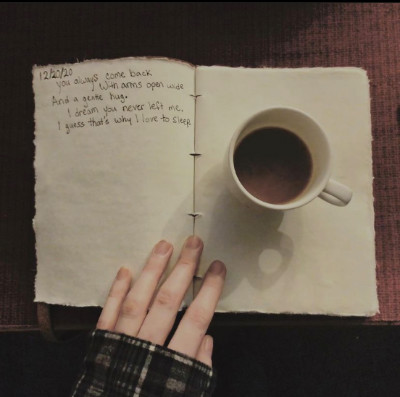 12/27/20
you always come back
with arms open wide
And a gentle hug.
I dream you never left me.
I guess that's why I love to sleep